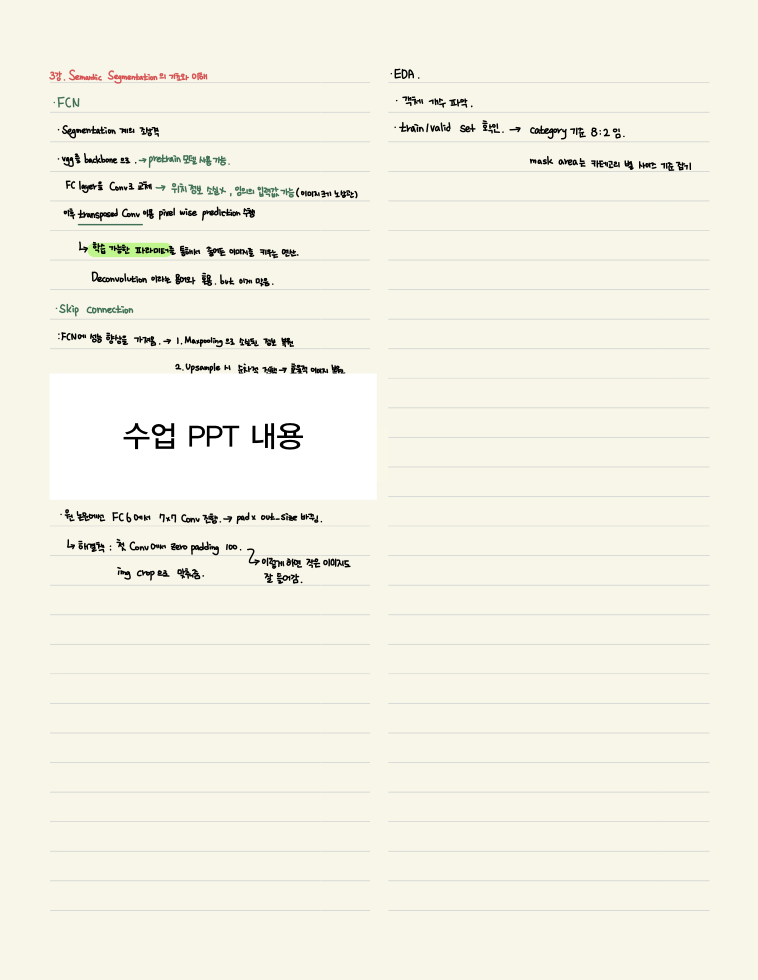 3강. Semantic Segmentation의 기초와 이해
·FCN
·Segmentation 계의 조상격
·vgg를 backbone으로. → pretrain 모델 사용 가능.
FC layer을 Conv로 교체 → 위치 정보 소실x, 임의의 입력값 가능 (이미지 크기 노상관)
이후 transposed Conv 이용 pixel wise prediction 수행
↳ 학습 가능한 파라미터를 통해서 줄어든 이미지를 키우는 연산.
Deconvolution 이라는 용어와 혼용. but 이게 맞음.
·Skip connection
:FCN에 성능 향상을 가져옴. → 1. Maxpooling으로 소실된 정보 복원
2. Upsample 시 순차적 진행 → 효율적 이미지 복원.
수업 PPT 내용
·원 논문에선 FC6에서 7x7 Conv 진행. → pad x out_size 바뀜.
↳ 해결책 : 첫 Conv에서 zero padding 100.
↳ 이렇게 하면 작은 이미지도
img crop으로 맞춰줌.
잘 들어감.
·EDA.
· 객체 개수 파악.
·train/valid set 확인. → category 기준 8:2 임.
mask area는 카테고리 별 사이즈 기준 잡기